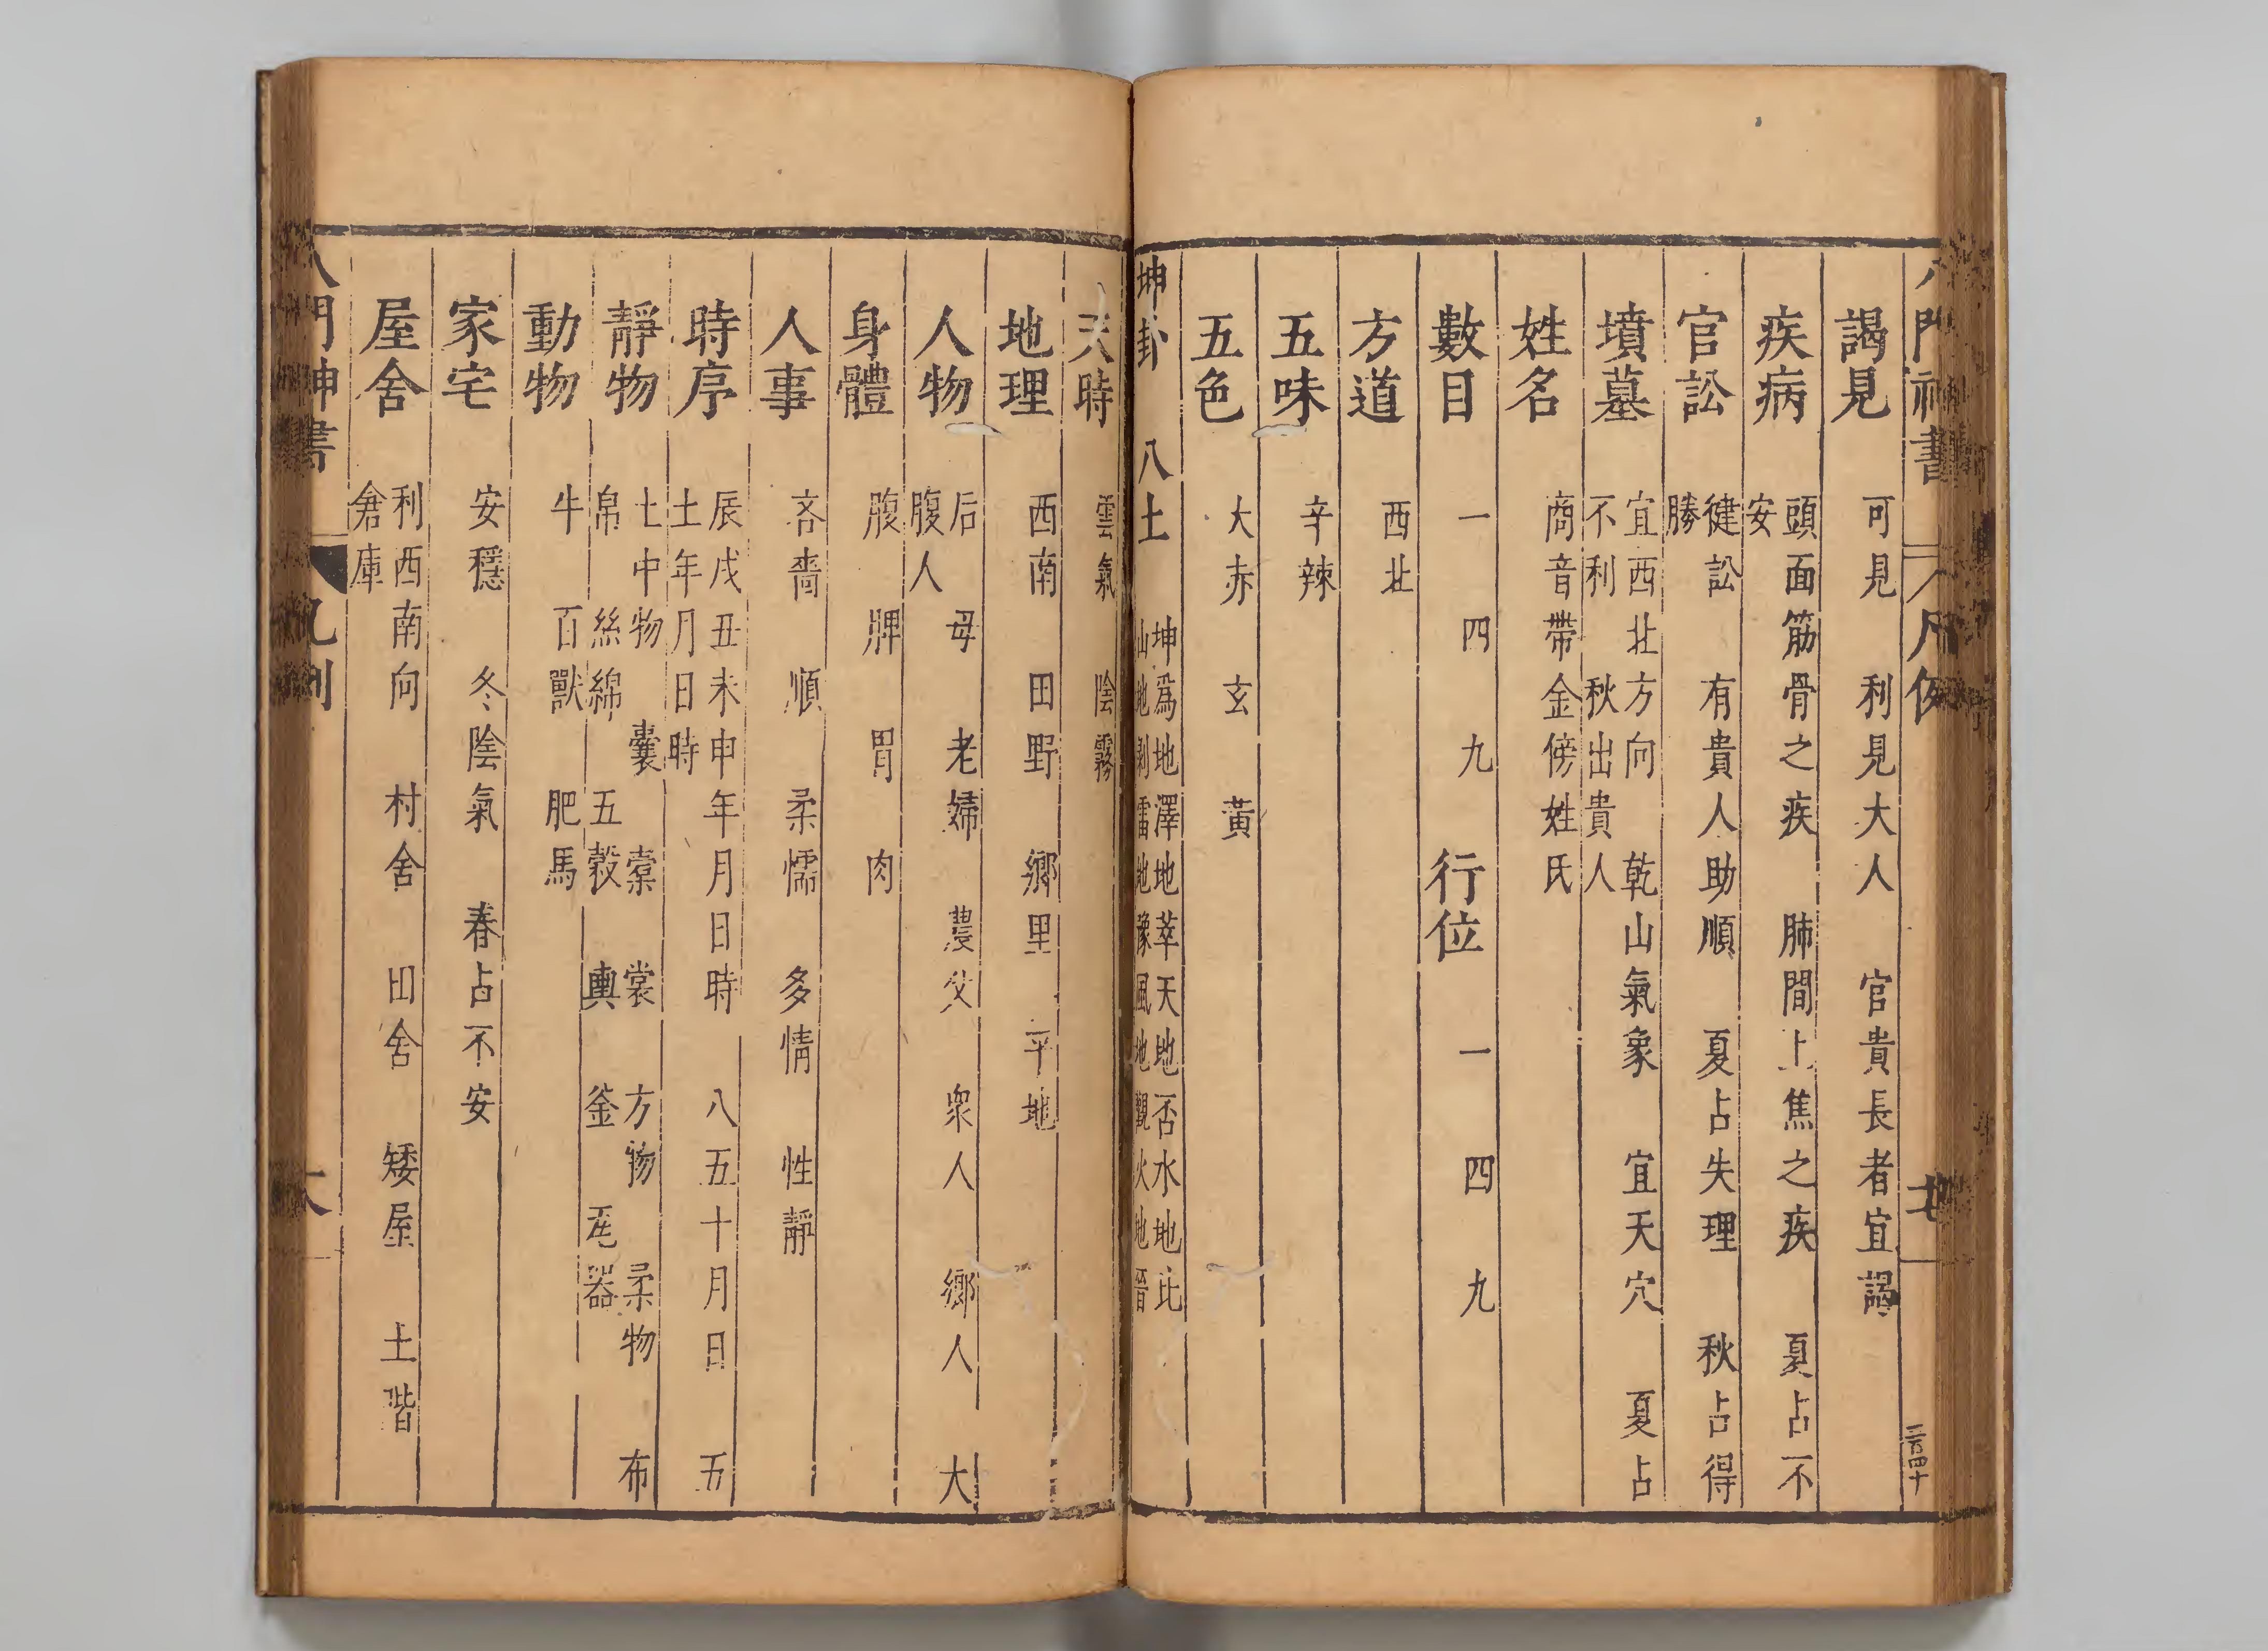 八門神書 八 凡例
三百四十
謁見 可見 利見大人 官貴長者宜謁
疾病 頭面筋骨之疾 肺間上焦之疾 夏占不
安
官訟 徤訟 有貴人助順 夏占失理 秋占得
勝
墳墓 宜西北方向 乾山氣象 宜天穴 夏占
不利 秋出貴人
姓名 商音帶金傍姓氏
數目 一四九 行位 一四九
方道 西北
五味 辛辣
五色 大赤 玄 黃
坤卦 八 土 坤爲地 澤地萃 天地否 水地比
山地剝 雷地豫 風地觀 火地晉
天時 雲氣 陰霧
地理 西南 田野 鄉里 平地
人物 后 母 老婦 農父 衆人 鄉人 大
腹人
身體 腹 脾 胃 肉
人事 吝嗇 順 柔懦 多情 性靜
時序 辰戌丑未申年月日時 八五十月日 五
土年月日時
靜物 七中物 囊 橐 裳 方物 柔物 布
帛 絲綿 五穀 輿 釜 瓦器
動物 牛 百獸 肥馬
家宅 安穩 冬陰氣 春占不安
屋舍 利西南向 村舍 田舍 矮屋 土階
倉庫
八門神書 凡例